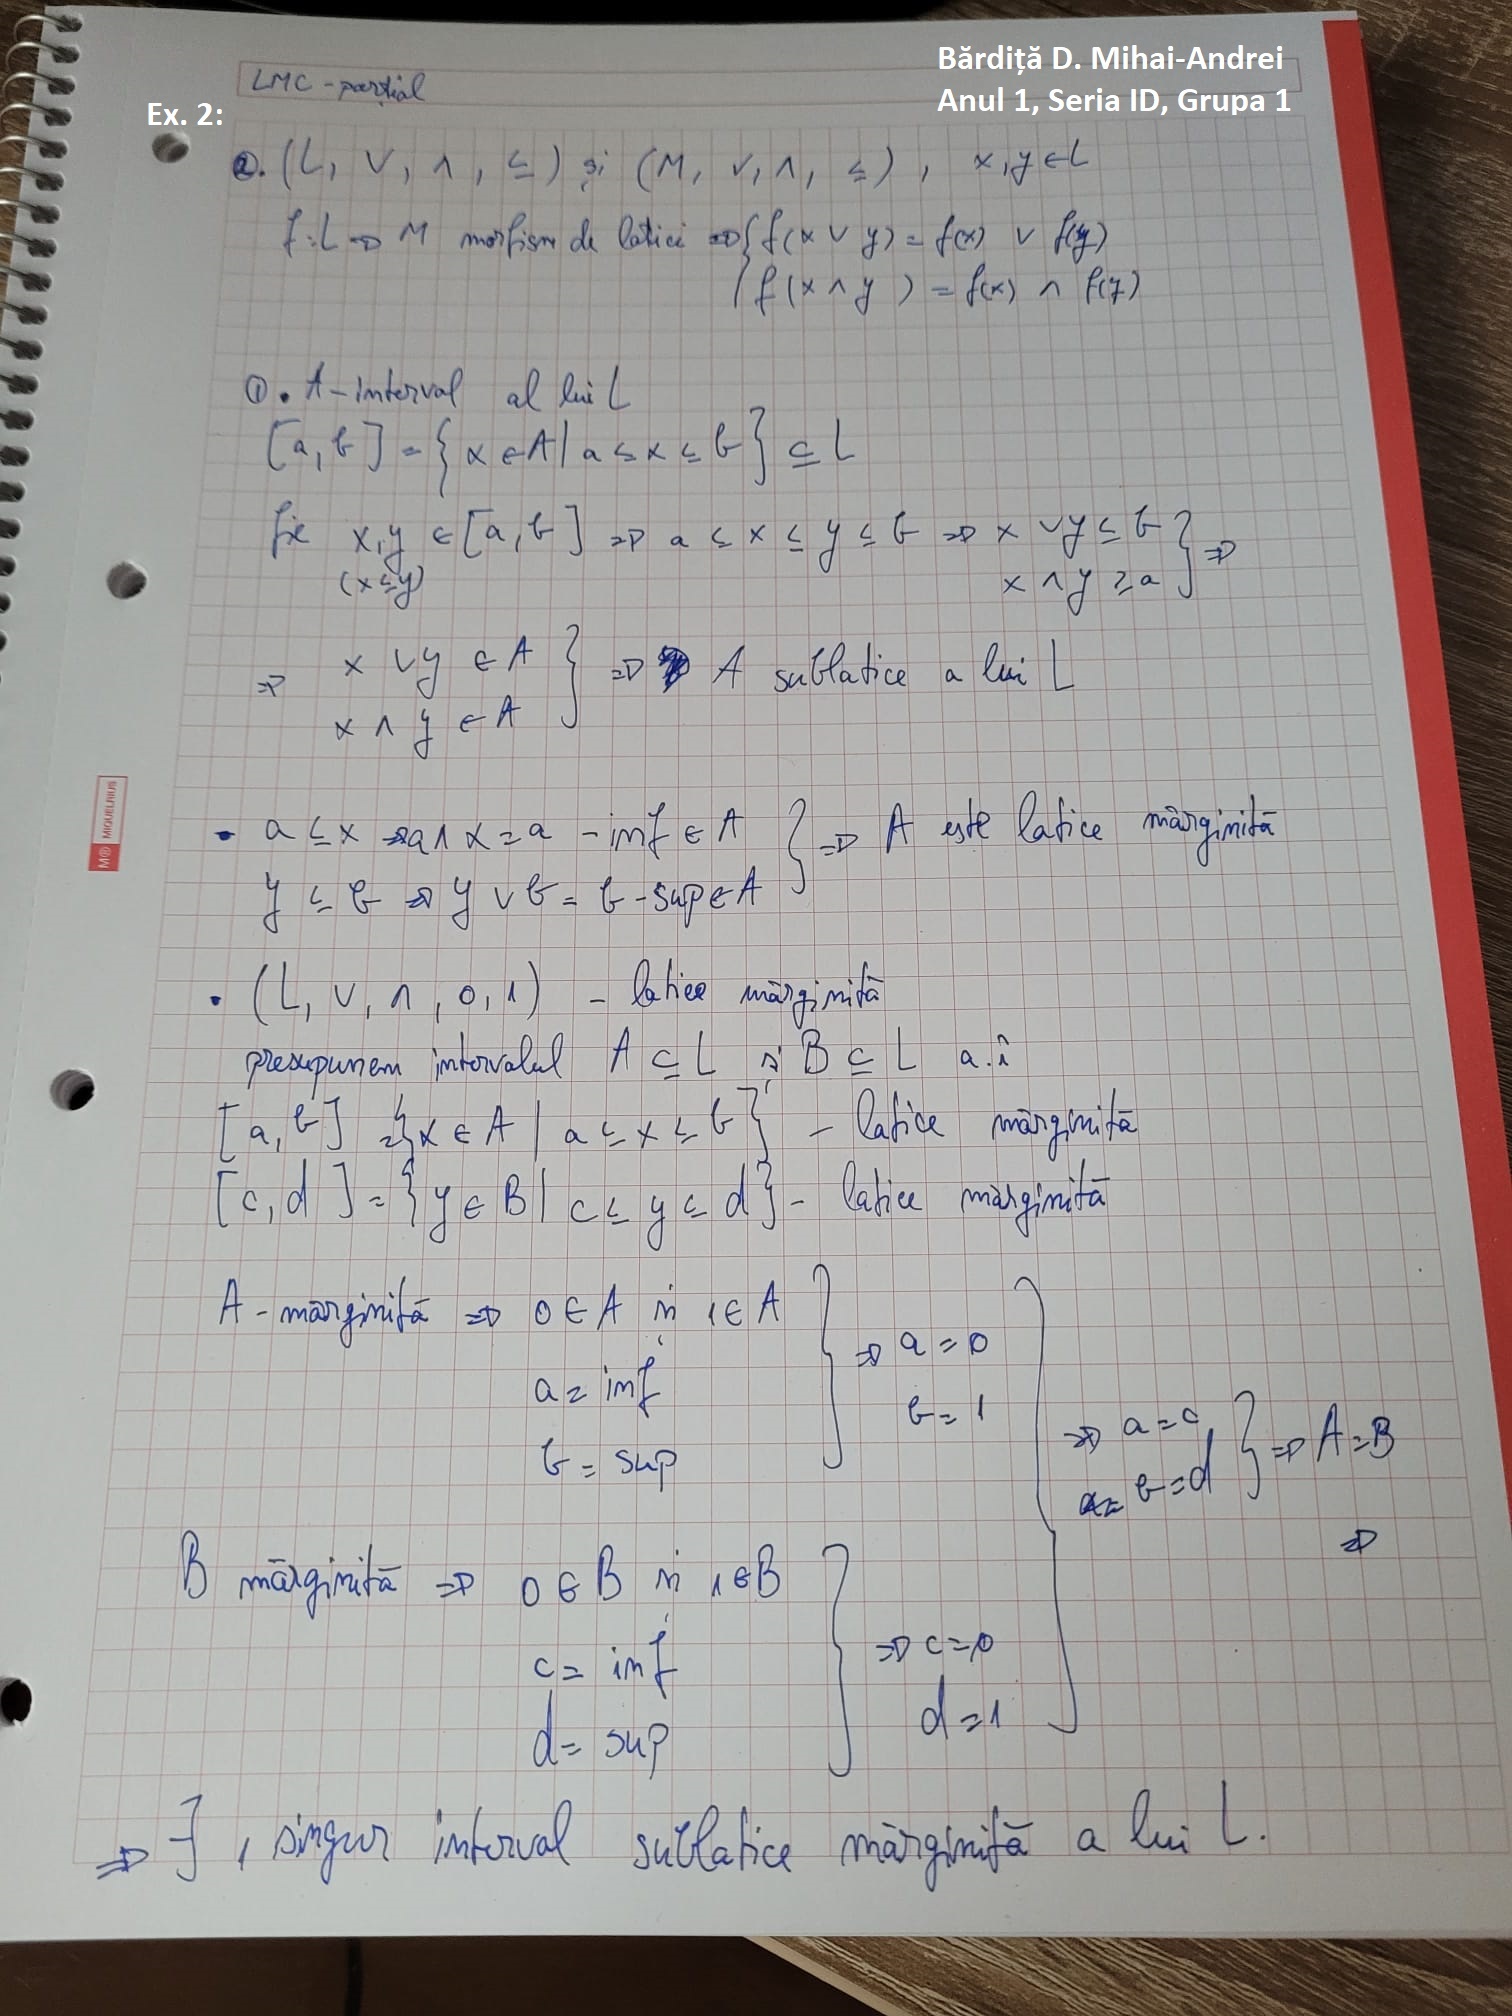 Bărdiță D. Mihai-Andrei
Anul 1, Seria ID, Grupa 1
LMC - parțial
Ex. 2:
2. (L, ∨, ∧, ≤) și (M, ∨, ∧, ≤), x,y ∈ L
f: L → M morfism de latici ⇒ { f(x ∨ y) = f(x) ∨ f(y)
f(x ∧ y) = f(x) ∧ f(y)
① . A - interval al lui L
[a, b] = {x ∈ A | a ≤ x ≤ b} ⊆ L
fie x,y ∈ [a, b] ⇒ a ≤ x ≤ y ≤ b ⇒ x ∨ y ≤ b } ⇒
(x ≤ y) x ∧ y ≥ a
⇒ x ∨ y ∈ A } ⇒ A sublatice a lui L
x ∧ y ∈ A
• a ≤ x ⇒ a ∧ x = a - inf ∈ A } ⇒ A este latice mărginită
y ≤ b ⇒ y ∨ b = b - sup ∈ A
• (L, ∨, ∧, 0, 1) - latice mărginită
presupunem intervalul A ⊆ L și B ⊆ L a.î
[a, b] = {x ∈ A | a ≤ x ≤ b} - latice mărginită
[c, d] = {y ∈ B | c ≤ y ≤ d} - latice mărginită
A - mărginită ⇒ 0 ∈ A și 1 ∈ A } ⇒ a = 0
a = inf
b = 1
b = sup
⇒ a = c
b = d } ⇒ A = B
⇒
B mărginită ⇒ 0 ∈ B și 1 ∈ B
c = inf } ⇒ c = 0
d = sup d = 1
⇒ ∃, singur interval sublatice mărginită a lui L.
M® MIQUELRIUS